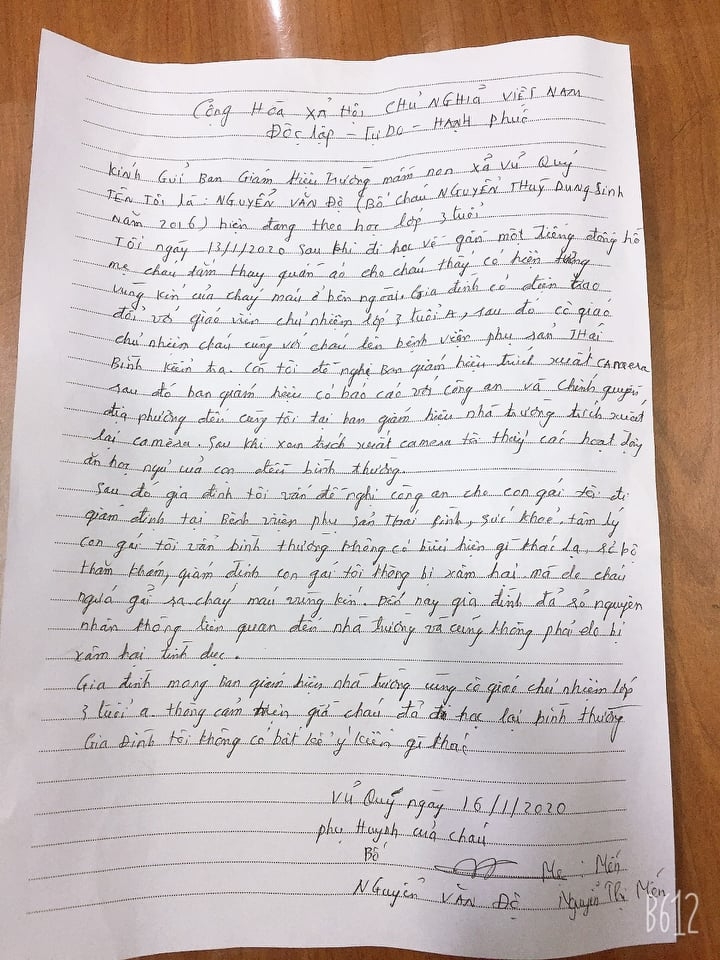 Cộng Hòa Xã Hội Chủ Nghĩa Việt Nam
Độc lập - Tự Do - Hạnh Phúc
Kính Gửi Ban Giám Hiệu Trường mầm non xã Vũ Quý
Tên Tôi là: NGUYỄN VĂN ĐỘ (Bố cháu NGUYỄN THUỲ DUNG Sinh
năm 2016) hiện đang theo học lớp 3 tuổi
Tối ngày 13/1/2020 sau khi đi học về gần một tiếng đồng hồ
mẹ cháu tắm thay quần áo cho cháu thấy có hiện tượng
vùng kín của chảy máu ở bên ngoài. Gia đình có điện trao
đổi với giáo viên chủ nhiệm lớp 3 tuổi A, sau đó cô giáo
chủ nhiệm cháu cùng với cháu lên bệnh viện phụ sản Thái
Bình kiểm tra. Còn tôi đề nghị Ban giám hiệu trích xuất camera
sau đó ban giám hiệu có báo cáo với công an và chính quyền
địa phương đến cùng tôi tại ban giám hiệu nhà trường trích xuất
lại camera. Sau khi xem trích xuất camera tôi thấy các hoạt động
ăn học ngủ của con đều bình thường.
Sau đó gia đình tôi vẫn đề nghị công an cho con gái tôi đi
giám định tại Bệnh viện phụ sản Thái Bình, sức khoẻ, tâm lý
con gái tôi vẫn bình thường không có biểu hiện gì khác lạ, sơ bộ
thăm khám, giám định con gái tôi không bị xâm hại. mà do cháu
ngứa gãi sa chảy máu vùng kín. Đến nay gia đình đã rõ nguyên
nhân không liên quan đến nhà trường và cũng không phải do bị
xâm hại tình dục.
Gia đình mong Ban giám hiệu nhà trường cùng cô giáo chủ nhiệm lớp
3 tuổi a. thông cảm giờ cháu đã đi học lại bình thường
Gia Đình tôi không có bất kể ý kiến gì khác
Vũ Quý ngày 16/1/2020
phụ Huynh của cháu
Bố Mẹ: Mến
NGuyễn VĂN ĐỘ Nguyễn Thị Mến
B612